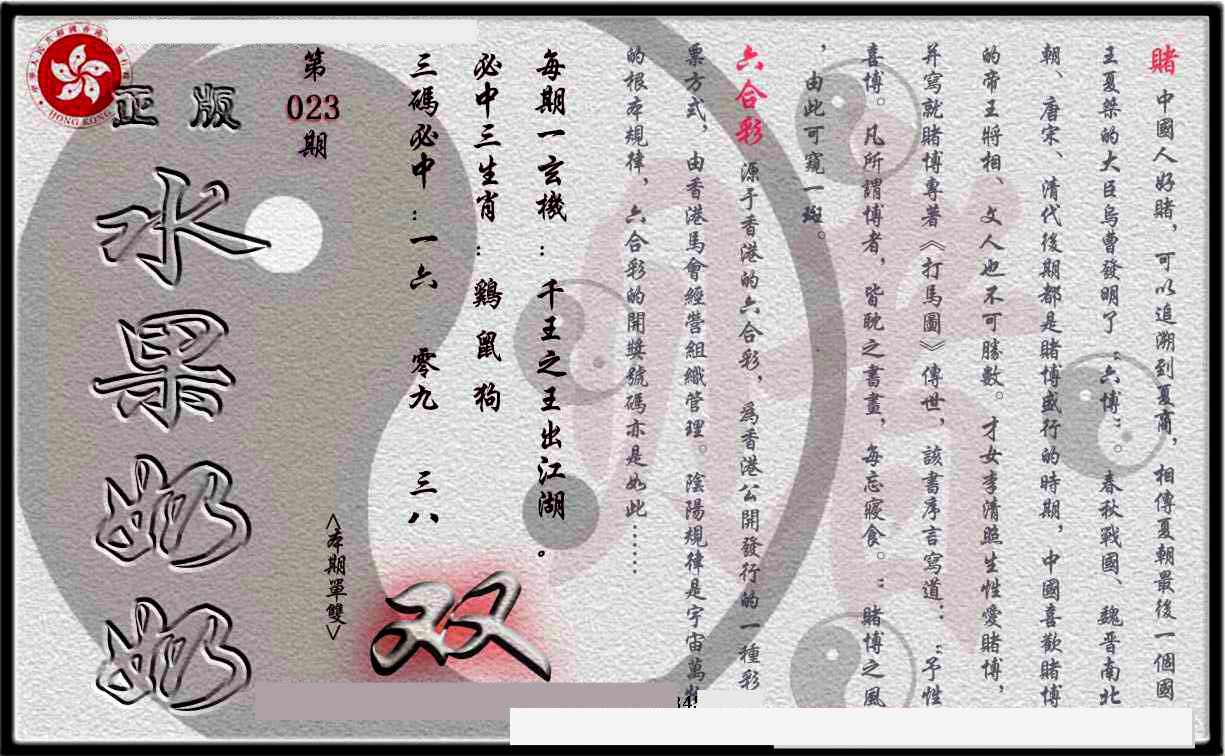 賭 中國人好賭，可以追溯到夏商，相傳夏朝最後一個國
王夏桀的大臣烏曹發明了“六博”。春秋戰國、魏晋南北
朝、唐宋、清代後期都是賭博盛行的時期，中國喜歡賭博
的帝王將相、文人也不可勝數。才女李清照生性愛賭博，
并寫就賭博專著《打馬圖》傳世，該書序言寫道：“予性
喜博。凡所謂博者，皆耽之書畫，每忘寢食。”賭博之風
，由此可窺一斑。
六合彩 源于香港的六合彩，爲香港公開發行的一種彩
票方式，由香港馬會經營組織管理。陰陽規律是宇宙萬物
的根本規律，六合彩的開獎號碼亦是如此……
每期一玄機：千王之王出江湖。
必中三生肖：鷄 鼠 狗
三碼必中：一六 零九 三八
<本期單雙>
双
第
023
期
正版
水果奶奶
HONG KONG